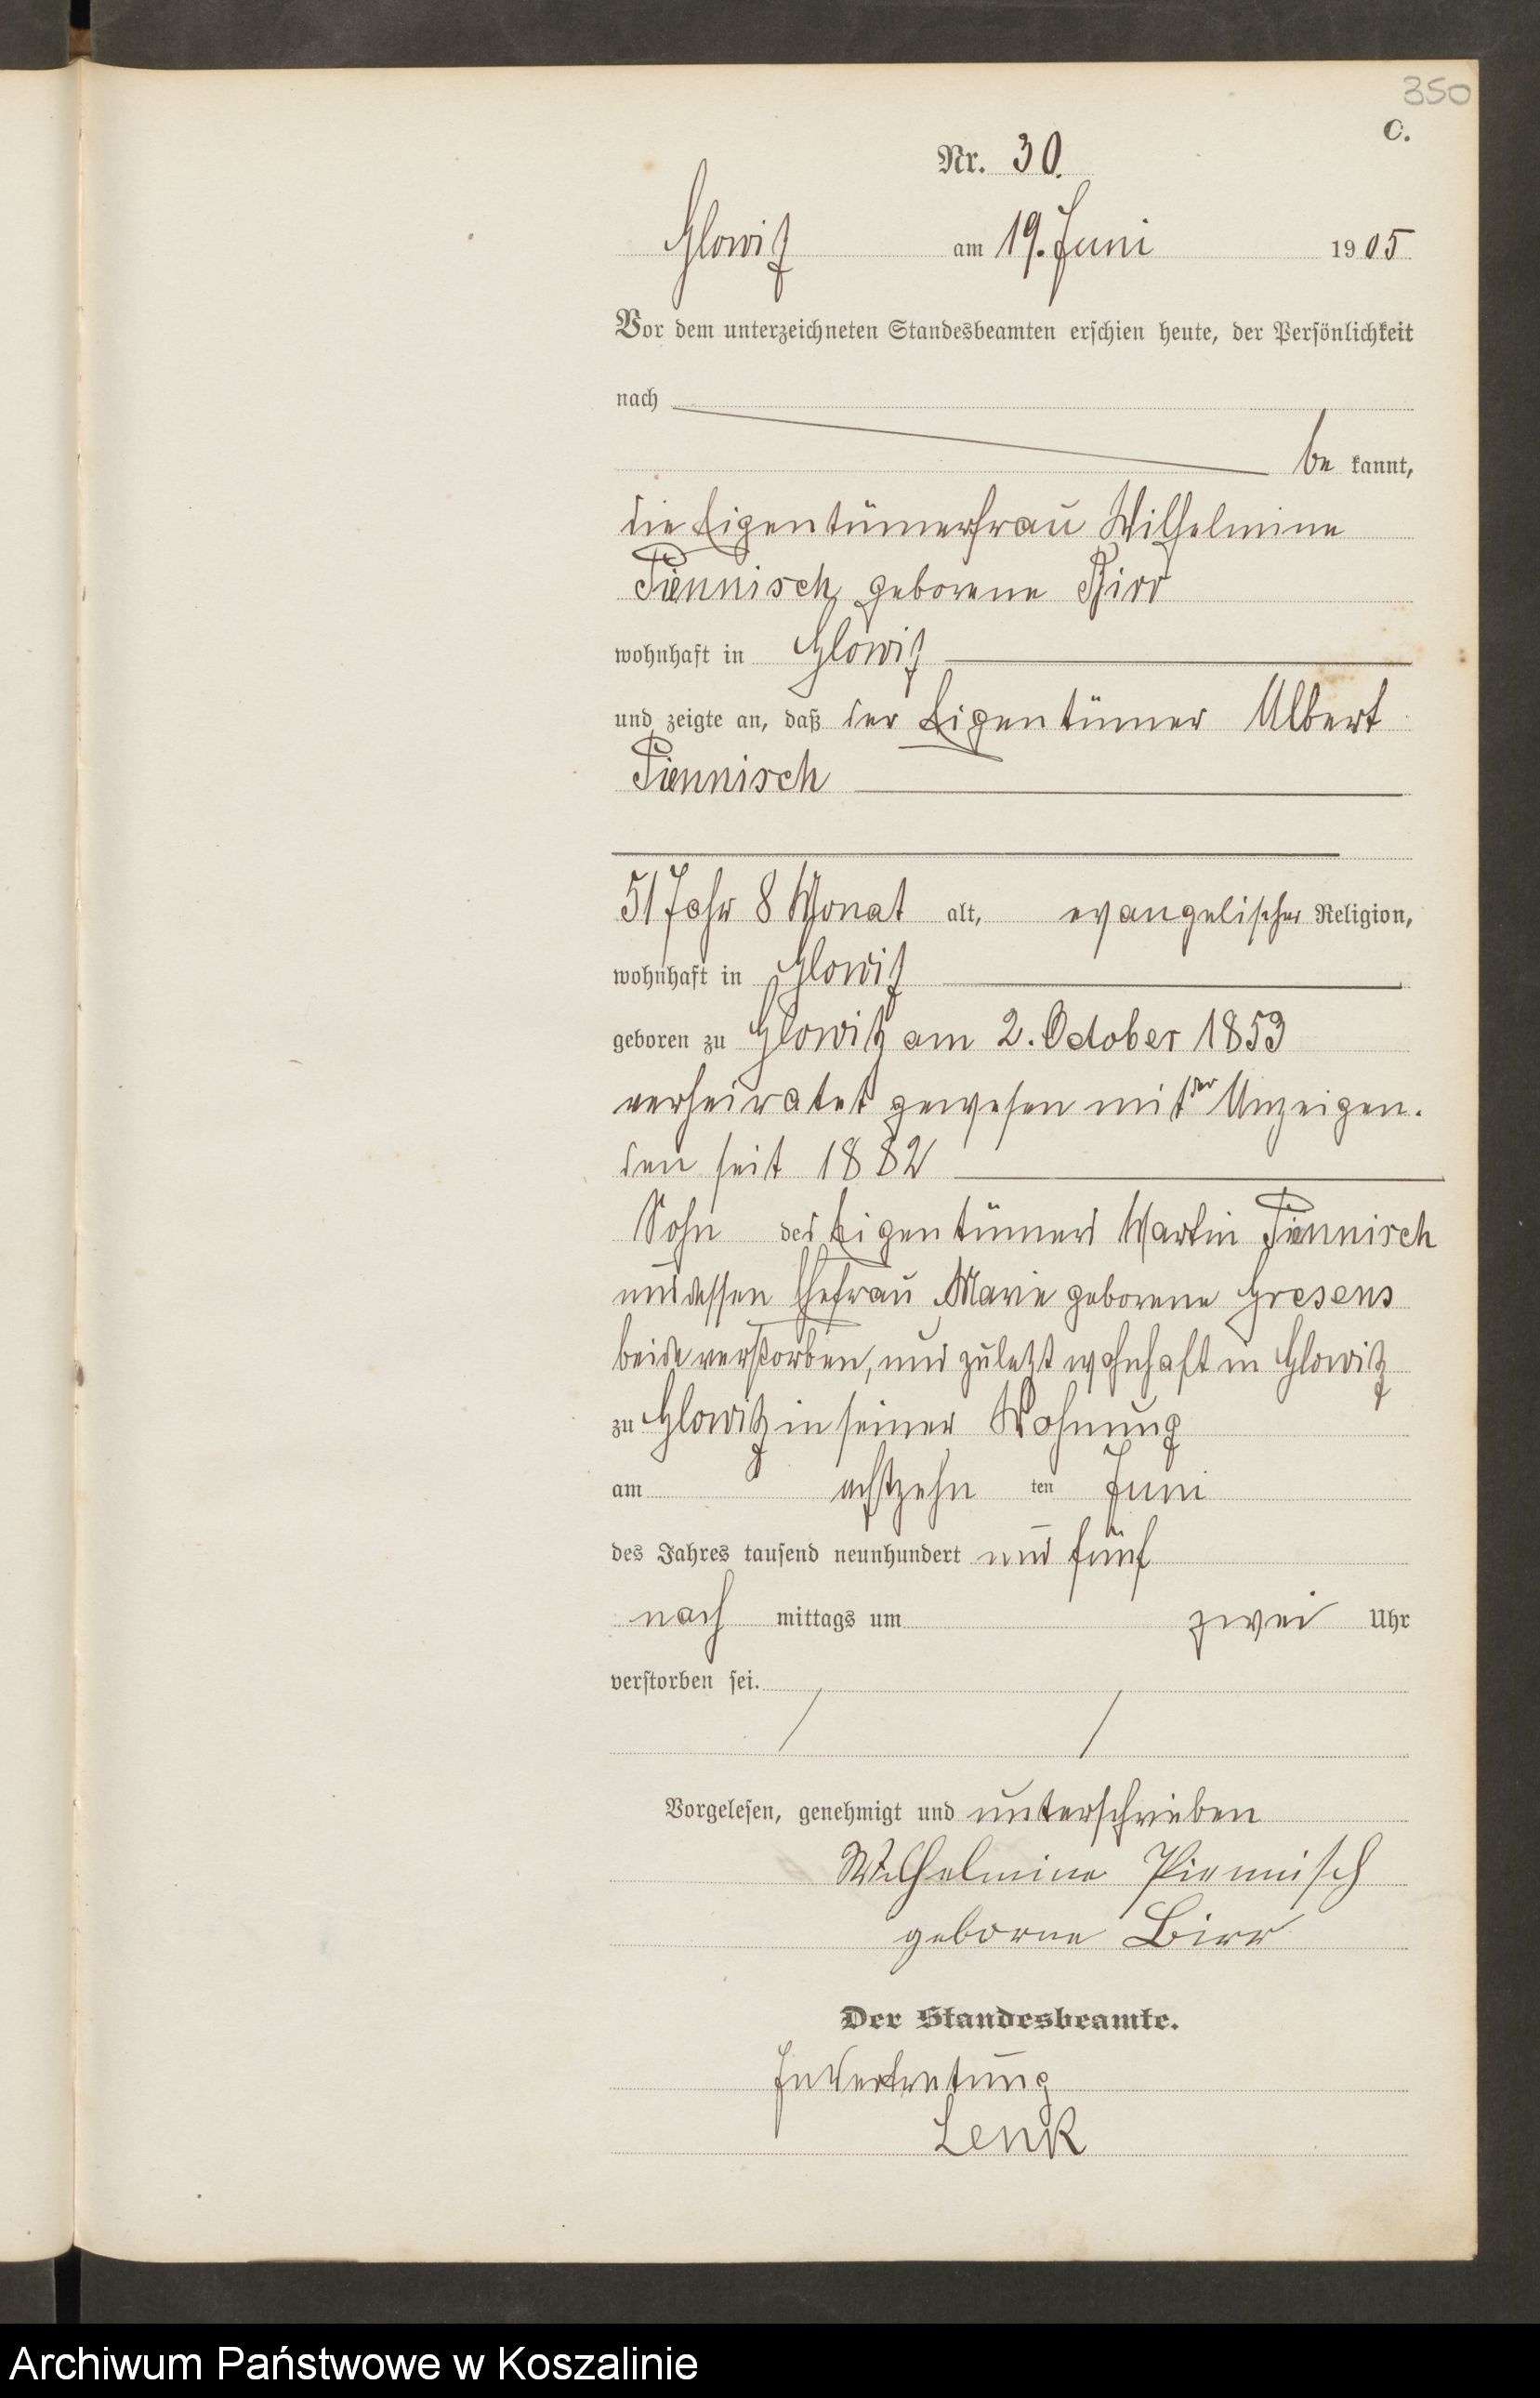 350
C.
Nr. 30.
Glowitz am 19. Juni 1905
Vor dem unterzeichneten Standesbeamten erschien heute, der Persönlichkeit
nach
be kannt,
die Eigentümerfrau Wilhelmine
Piennisch geborene Birr
wohnhaft in Glowitz
und zeigte an, daß der Eigentümer Albert
Piennisch
51 Jahr 8 Monat alt, evangelischer Religion,
wohnhaft in Glowitz
geboren zu Glowitz am 2. October 1853
verheiratet gewesen mit der Anzeigen-
den seit 1882
Sohn des Eigentümers Martin Piennisch
und dessen Ehefrau Marie geborene Gresens
beide verstorben, und zuletzt wohnhaft in Glowitz
zu Glowitz in seiner Wohnung
am achtzehn ten Juni
des Jahres tausend neunhundert und fünf
nach mittags um zwei Uhr
verstorben sei.
Vorgelesen, genehmigt und unterschrieben
Wilhelmine Piennisch
geborne Birr
Der Standesbeamte.
In Vertretung
Lenk
Archiwum Państwowe w Koszalinie